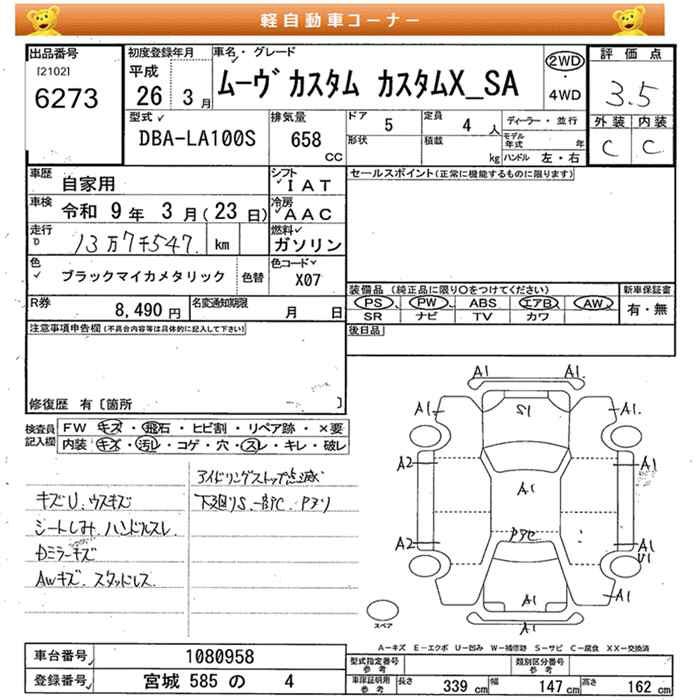 軽自動車コーナー
出品番号
[2102]
6273
初度登録年月
平成
26 3月
車名・グレード
ムーヴ カスタム カスタムX_SA
2WD
・
4WD
評価点
3.5
外装 内装
C C
型式
DBA-LA100S
排気量
658
CC
ドア
5
定員
4人
形状
積載
kg
ディーラー・並行
モデル年式 年
ハンドル 左・右
車歴
自家用
シフト
IAT
車検
令和 9年 3月(23日)
冷房
AAC
走行
13万7千547 km
燃料
ガソリン
色
ブラックマイカメタリック
色替
色コード
X07
R券
8,490円
名変通知期限
月 日
セールスポイント(正常に機能するものに限ります)
装備品 (純正品に限り○をつけてください)
PS PW ABS エアB AW
SR ナビ TV カワ
新車保証書
有・無
後日品
注意事項申告欄(不具合内容等は具体的に記入して下さい)
修復歴 有〔箇所 〕
検査員記入欄
FW キズ・飛石・ヒビ割・リペア跡・×要
内装 キズ・汚レ・コゲ・穴・スレ・キレ・破レ
キズU.ウスキズ
シートしみ.ハンドルスレ
Dミラーキズ
Awキズ.スタッドレス.
アイドリングストップ点滅
下廻りS
A1 A1
A1 S1 A1
A2 A1
A1
A2 A1
U1
A1
スペア
A-キズ E-エクボ U-凹み W-補修跡 S-サビ C-腐食 XX-交換済
車台番号
1080958
登録番号
宮城 585 の 4
型式指定番号
参考
類別区分番号
参考
車庫証明用
参考
長さ 339 cm
幅 147 cm
高さ 162 cm